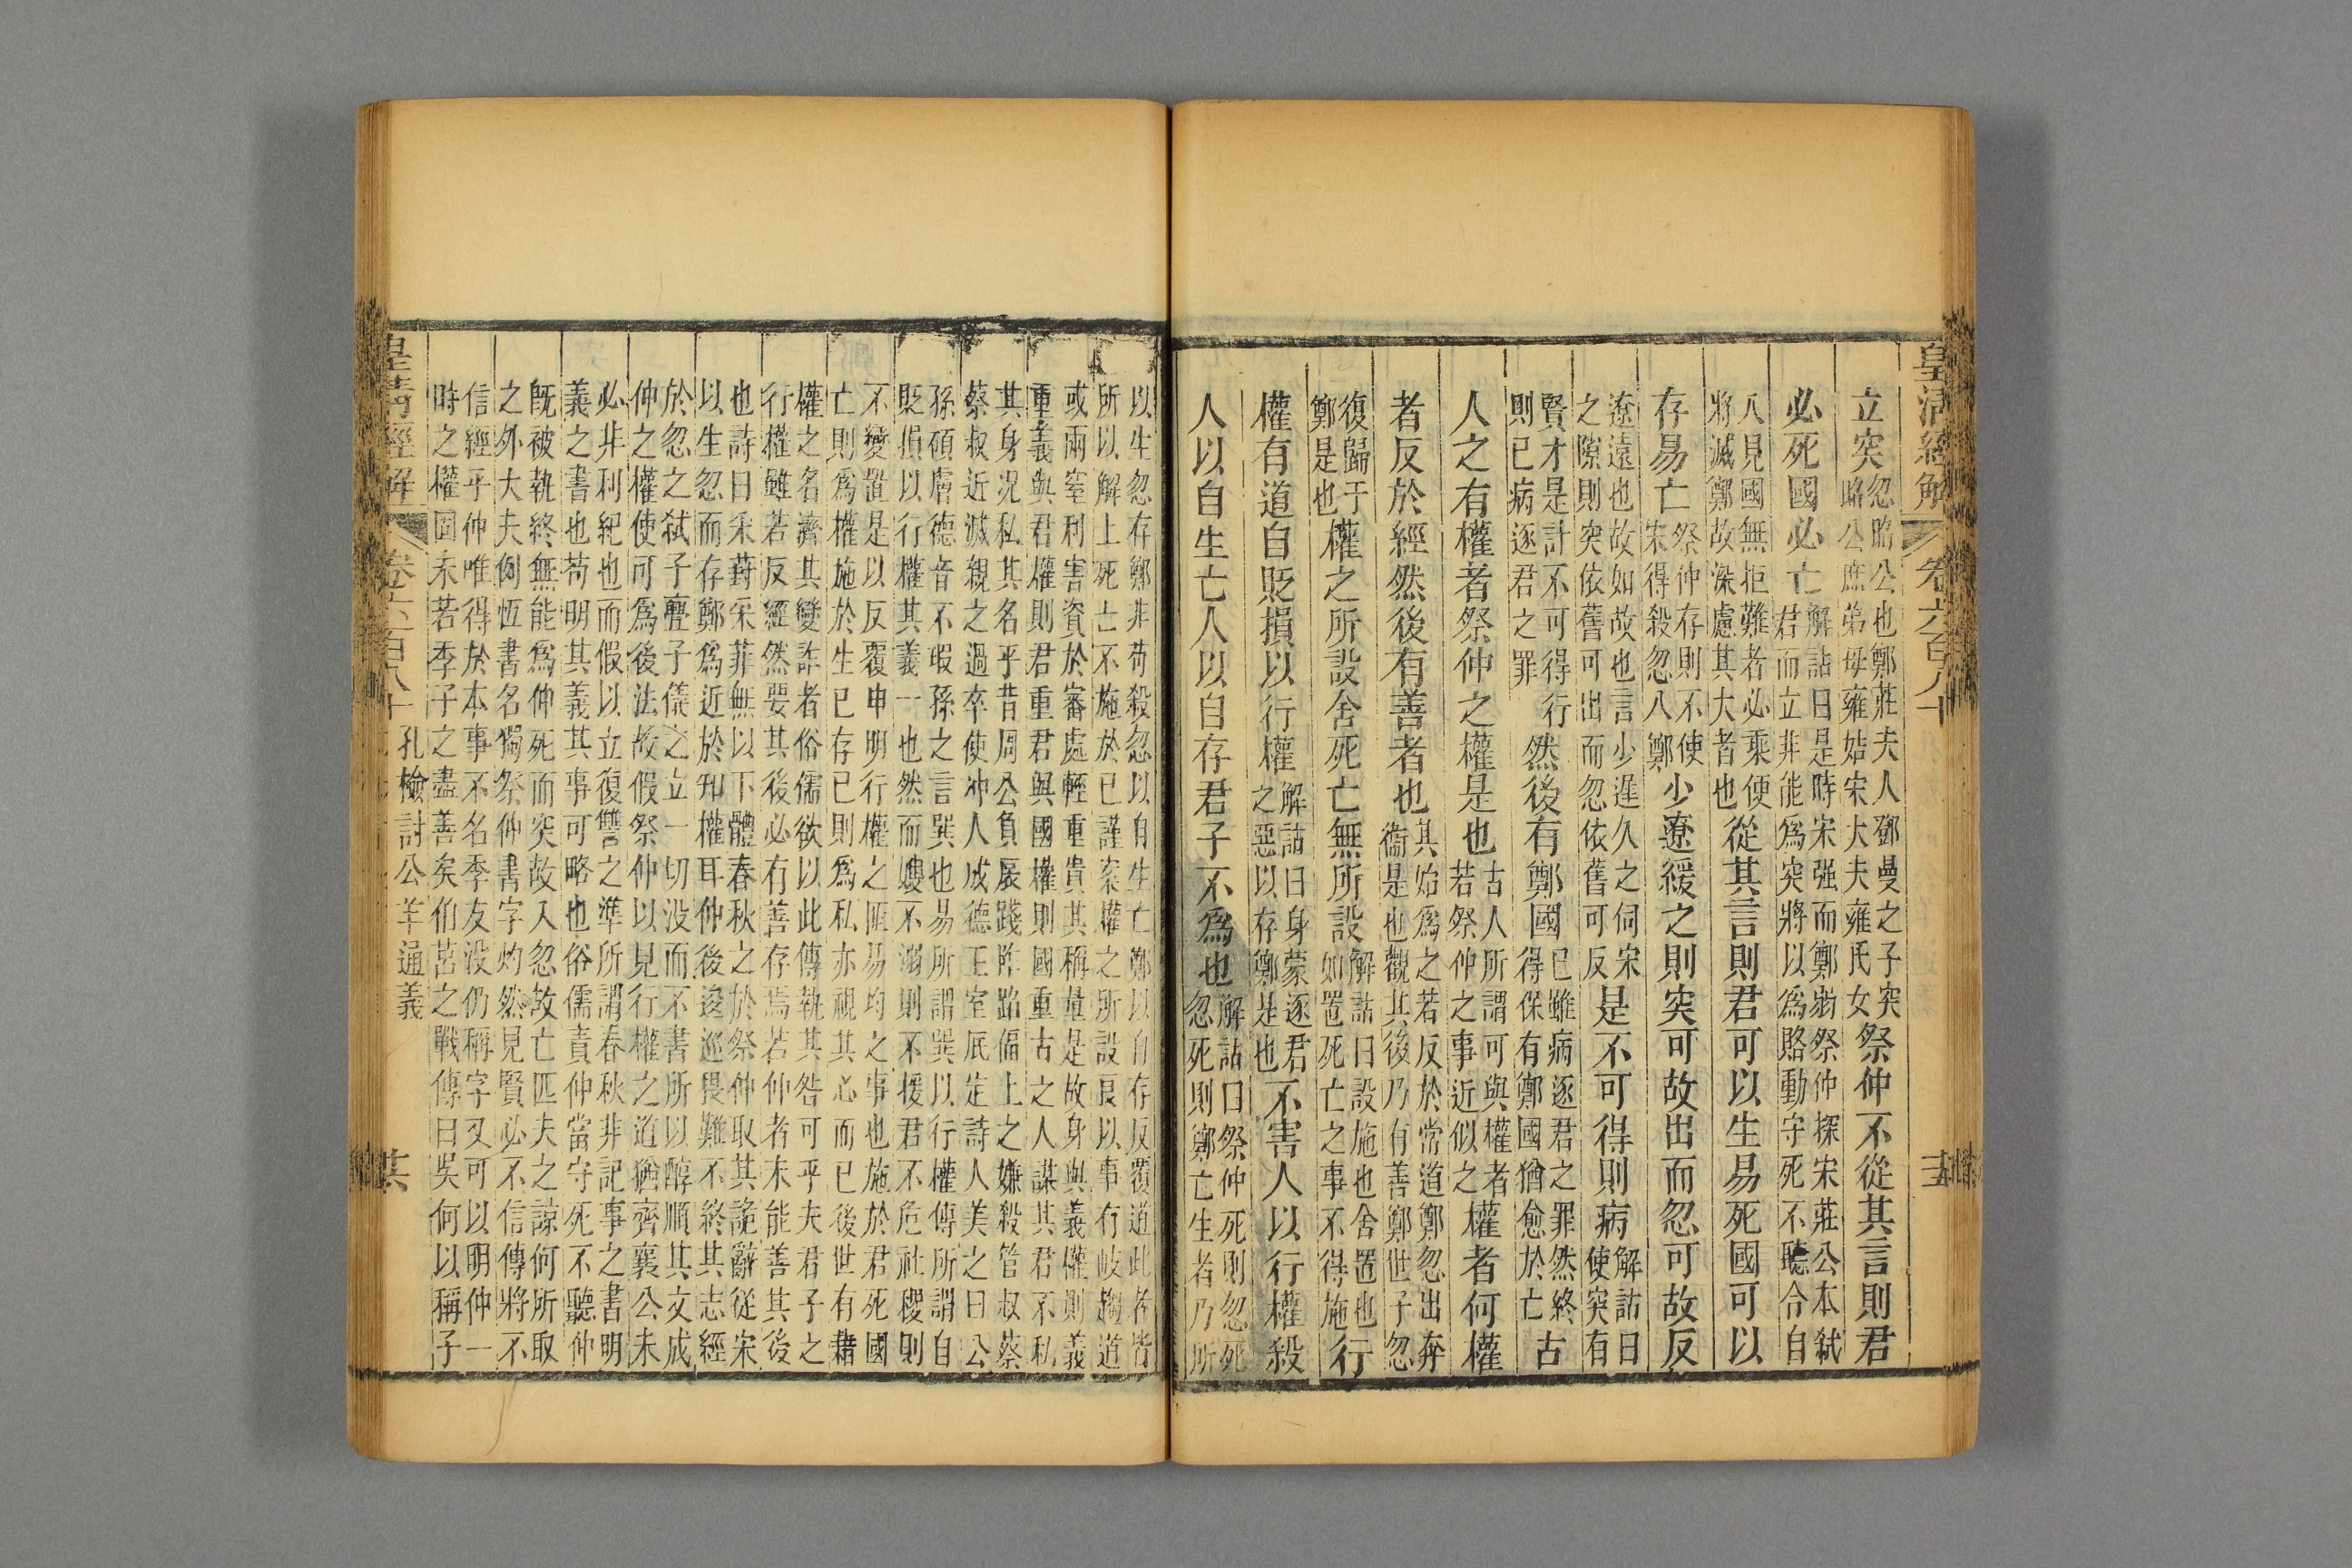 皇清經解
卷六百八十
立突忽昭公也鄭莊夫人鄧曼之子突昭公庶弟母雍姞宋大夫雍氏女祭仲不從其言則君
必死國必亡解詁曰是時宋强而鄭弱祭仲探宋莊公本弑君而立非能爲突將以爲賂動守死不聽合自
入見國無拒難者必乘便將滅鄭故深慮其大者也從其言則君可以生易死國可以
存易亡祭仲存則不使宋得殺忽入鄭少遼緩之則突可故出而忽可故反
遼遠也故如故也言少遲久之伺宋之隙則突依舊可出而忽依舊可反是不可得則病解詁曰使突有
賢才是計不可得行則已病逐君之罪然後有鄭國已雖病逐君之罪然終得保有鄭國猶愈於亡古
人之有權者祭仲之權是也古人所謂可與權者若祭仲之事近似之權者何權
者反於經然後有善者也其始爲之若反於常道鄭忽出奔衞是也觀其後乃有善鄭世子忽
復歸于鄭是也權之所設舍死亡無所設解詁曰設施也舍置也如置死亡之事不得施行
權有道自貶損以行權解詁曰身蒙逐君之惡以存鄭是也不害人以行權殺
人以自生亡人以自存君子不爲也解詁曰祭仲死則忽死忽死則鄭亡生者乃所
以生忽存鄭非苟殺忽以自生亡鄭以自存反覆道此者皆
所以解上死亡不施於已謹案權之所設良以事有岐趨道
或兩窒利害資於審處輕重貴其稱量是故身與義權則義
重義與君權則君重君與國權則國重古之人謀其君不私
其身况私其名乎昔周公負扆踐阼蹈偪上之嫌殺管叔蔡
蔡叔近滅親之過卒使沖人成德王室厎定詩人美之曰公
孫碩膚德音不瑕孫之言巽也易所謂巽以行權傳所謂自
貶損以行權其義一也然而嫂不溺則不援君不危社稷則
不變置是以反覆申明行權之匪易均之事也施於君死國
亡則爲權施於生已存已則爲私亦視其心而已後世有藉
權之名濟其變詐者俗儒欲以此傳執其咎可乎夫君子之
行權雖若反經然要其後必有善存焉若仲者未能善其後
也詩曰采葑采菲無以下體春秋之於祭仲取其詭辭從宋
以生忽而存鄭爲近於知權耳仲後逡巡畏難不終其志經
於忽之弑子亹子儀之立一切没而不書所以醇順其文成
仲之權使可爲後法故假祭仲以見行權之道猶齊襄公未
必非利紀也而假以立復讐之準所謂春秋非記事之書明
義之書也苟明其義其事可略也俗儒責仲當守死不聽仲
旣被執終無能爲仲死而突故入忽故亡匹夫之諒何所取
之外大夫例恆書名獨祭仲書字灼然見賢必不信傳將不
信經乎仲唯得於本事不名季友没仍稱字又可以明仲一
時之權固未若季子之盡善矣伯莒之戰傳曰吳何以稱子
孔檢討公羊通義
皇清經解
卷六百八十